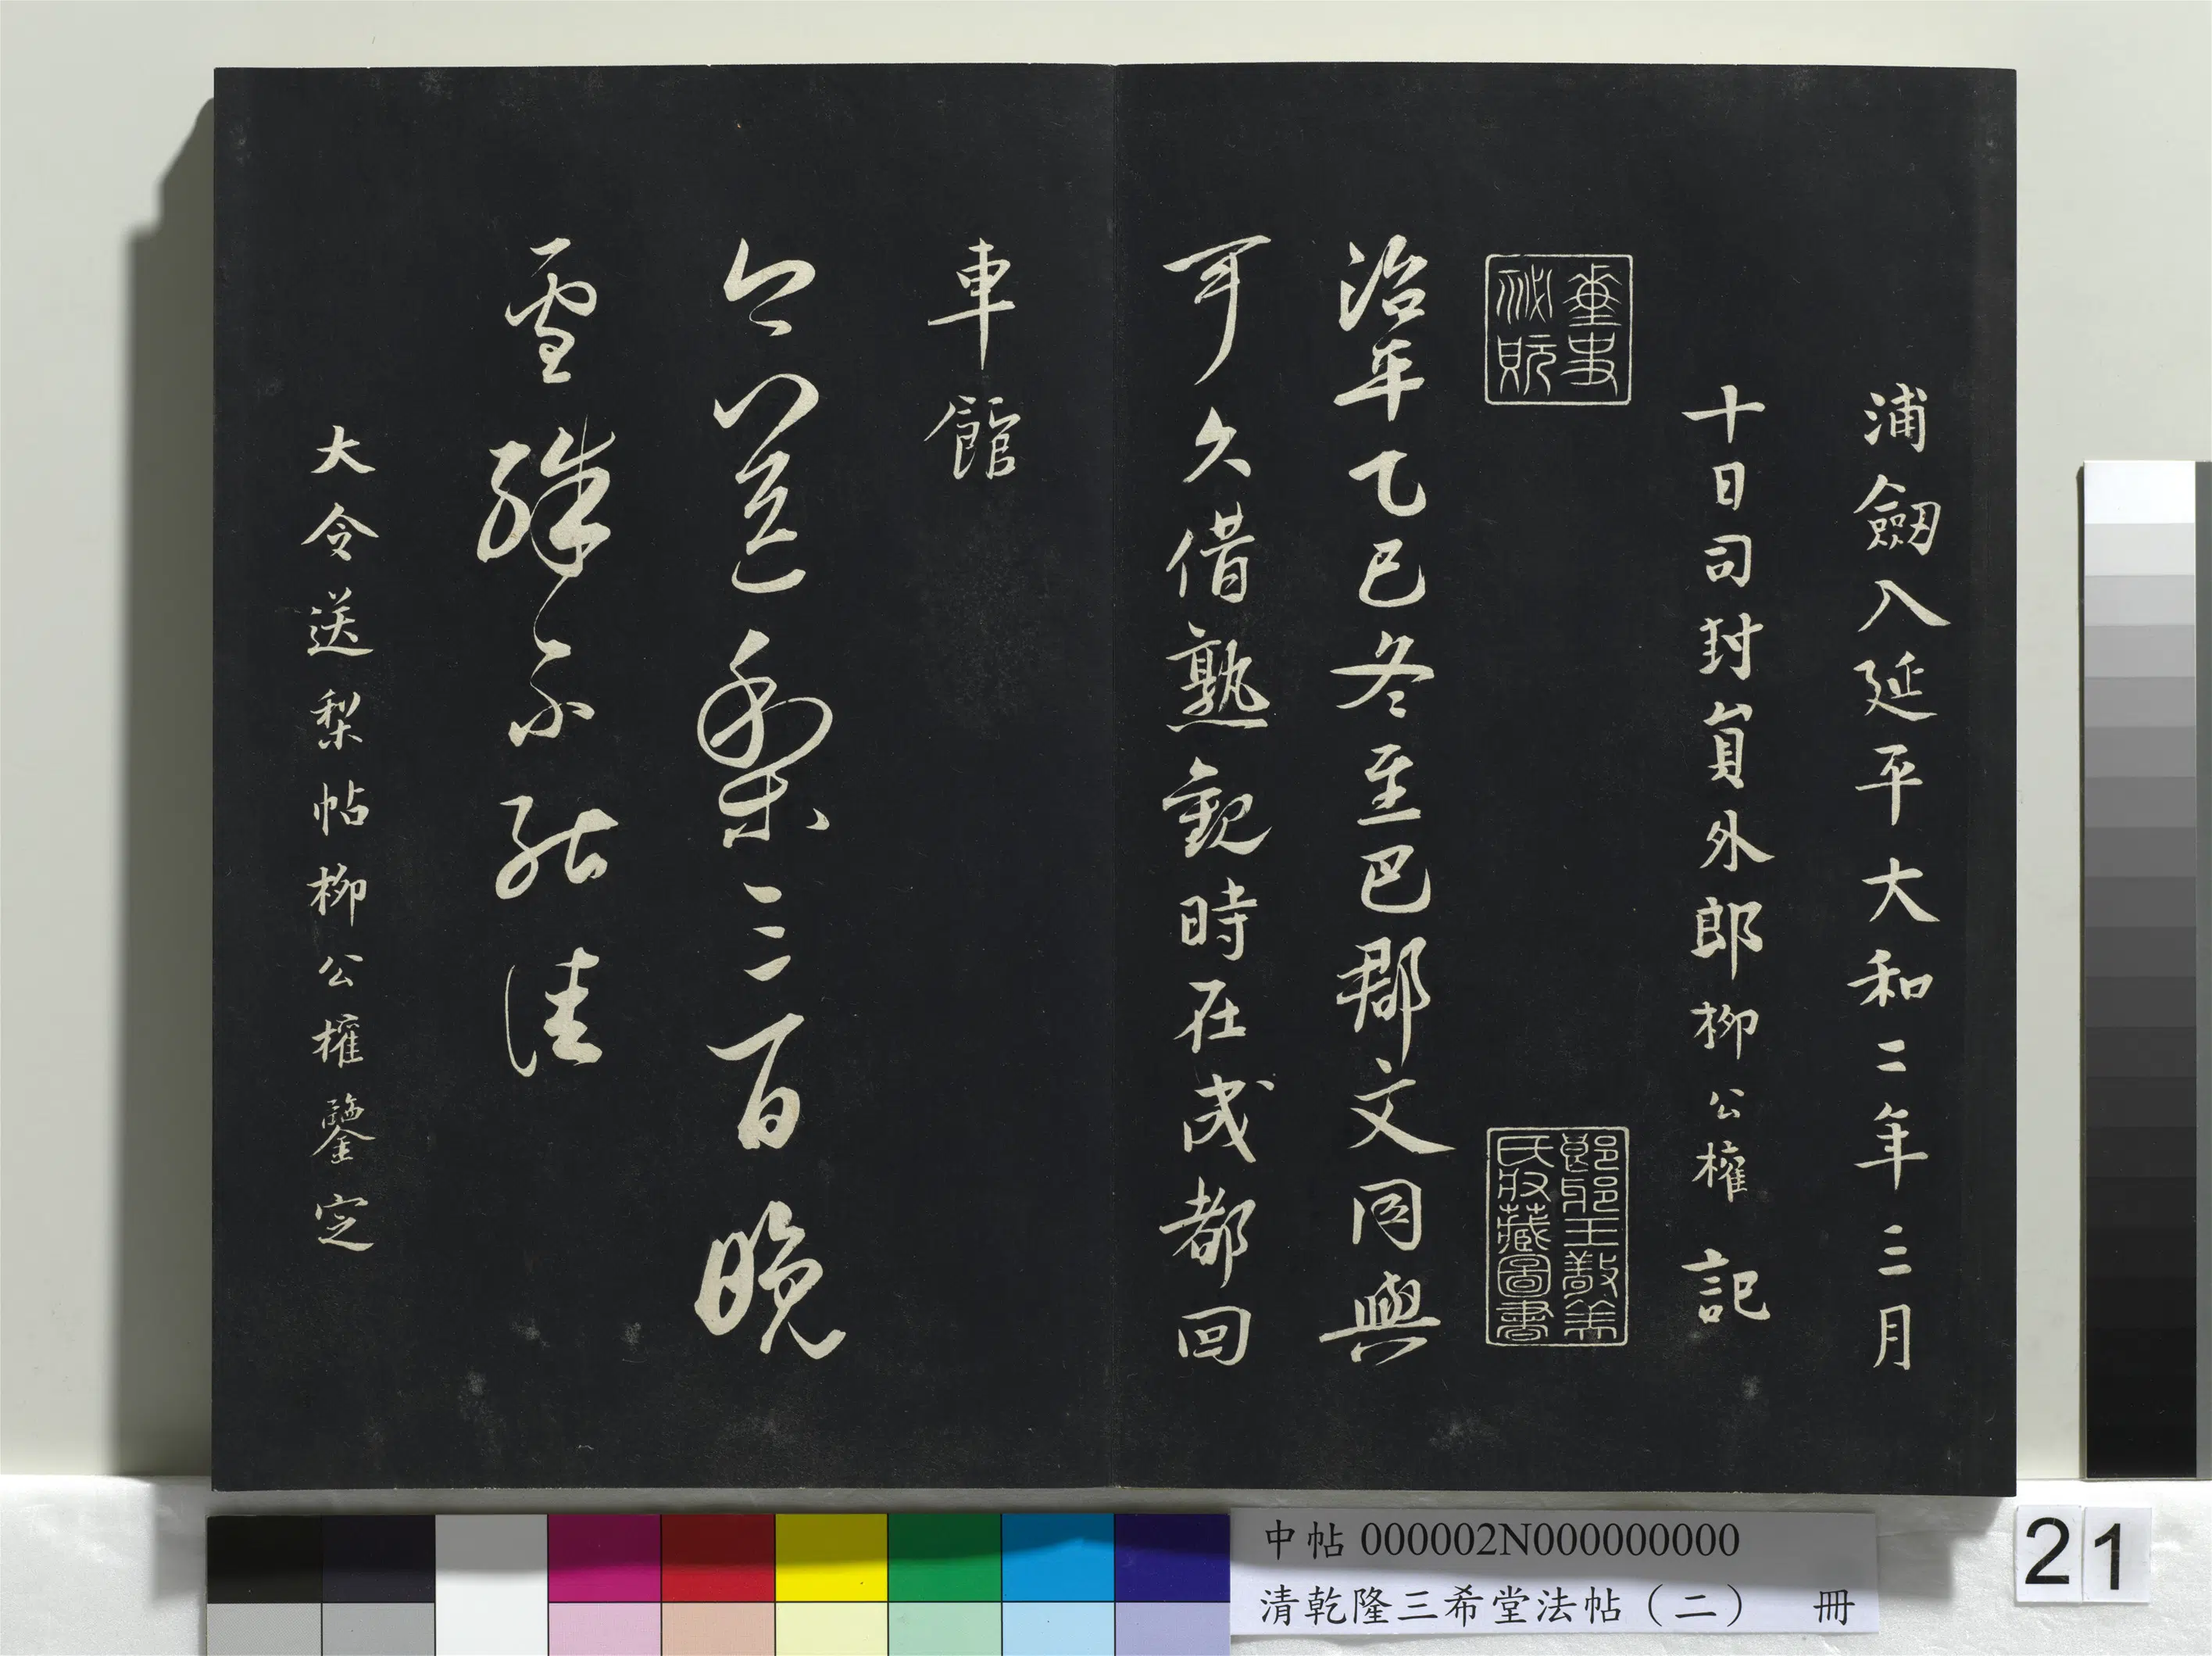 浦劒入延平大和二年三月
十日司封員外郎柳公權記
郎邪王敬美
氏收藏圖書
治年乙巳冬至巴郡文同與
可久借熟觀時在成都回
車館
今送梨三百晚
雪殊不能佳
大令送梨帖柳公權鑒定
中帖 000002N000000000
清乾隆三希堂法帖（二） 冊
21